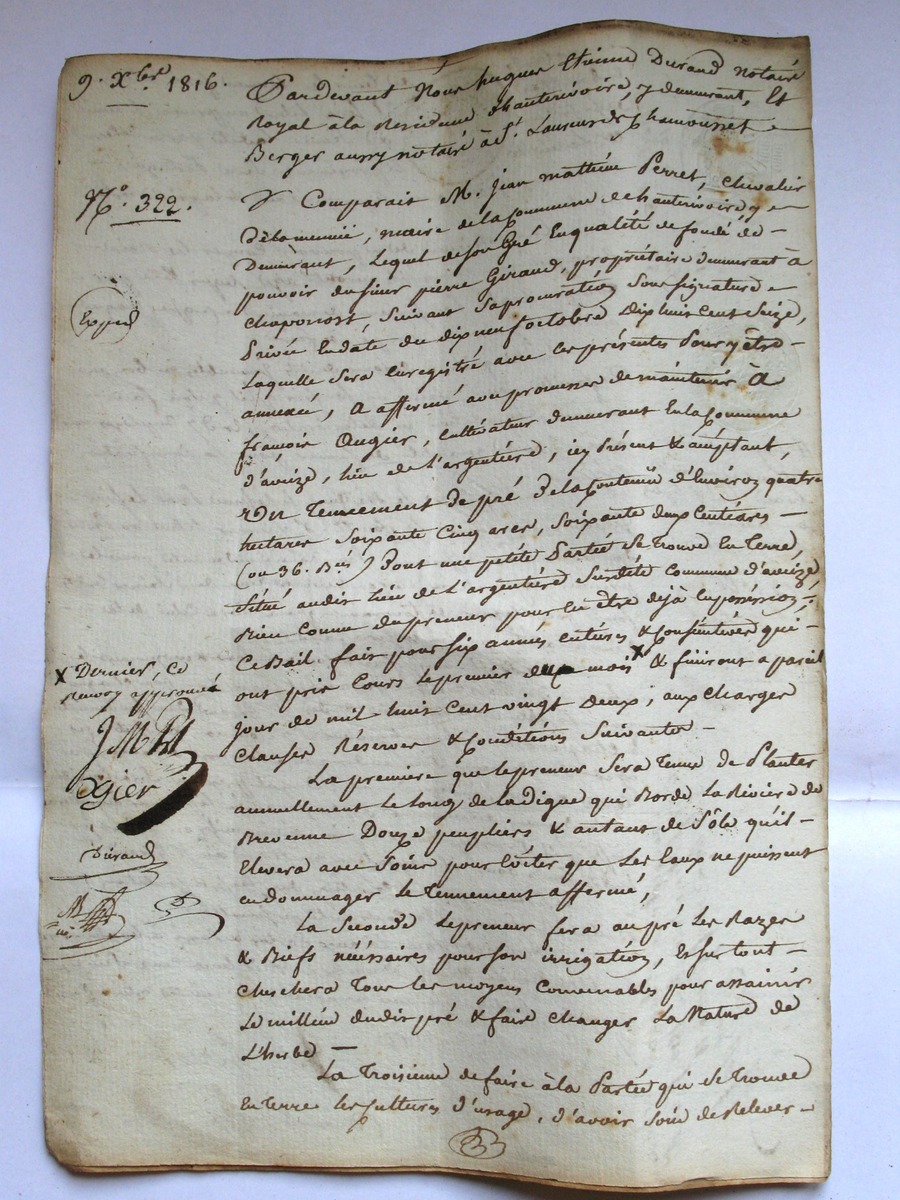 9. Xbre 1816.
Pardevant Nous hugues Etienne Durand notaire
Royal à la Residence d'hauterivoire, y demeurant, Et
Berger aussy notaire à St. Laurent de Chamousset
N.o 322.
Comparait M. Jean mathieu Perret, chevalier
, maire de la Commune de hauterivoire, y
Demeurant, Lequel de son Gré En qualité de fondé de
pouvoir du sieur pierre Giraud, propriétaire demeurant à
Chaponost, suivant Sa procuration Sous signature
Expéd
Privée En date du dix neuf octobre Dix huit Cent Seize,
Laquelle sera Enregistré avec les présentes Pour y être
annexée, A affermé avec promesse de maintenir à
françois Ougier, Cultivateur demeurant En la Commune
d'aveize, lieu de L'argentière, icy Présent & acceptant,
Un Tennement de pré De la Contenue d'Environ quatre
hectares Soixante Cinq ares, Soixante deux Centiares
(ou 36. Bées) Dont une petite Partie Se trouve En terre,
Situé audit Lieu de L'argentière Susdite Commune d'aveize
Bien Connu du preneur pour En être dejà En possession;
Ce Bail fait pour six années entières & Consécutives qui
ont pris Cours le premier du mois X & finiront a pareil
jour de mil huit Cent vingt Deux; aux Charges
Clauses Réserves & Conditions Suivantes
X Dernier, Ce
Renvoy approuvé
JMPt
Ogier
Durand
La première que le preneur Sera Tenu de Planter
annuellement Le Long de la digue qui Borde La Rivière de
Brevenne Douze peupliers & autant de Sôle qu'il
Elevera avec Soins pour Eviter que Les Eaux ne puissent
endommager le Tennement affermé,
La Seconde Le preneur fera au pré Les Razes
& Biefs nécéssaires pour son irrigation, Et surtout
Cherchera Tous les moyens Convenables pour assainir
Le milieu dudit pré & faire Changer La Nature de
L'herbe
La Troisième de faire à la Partie qui Se trouve
En terre les Cultures d'usage, d'avoir soin de Relever